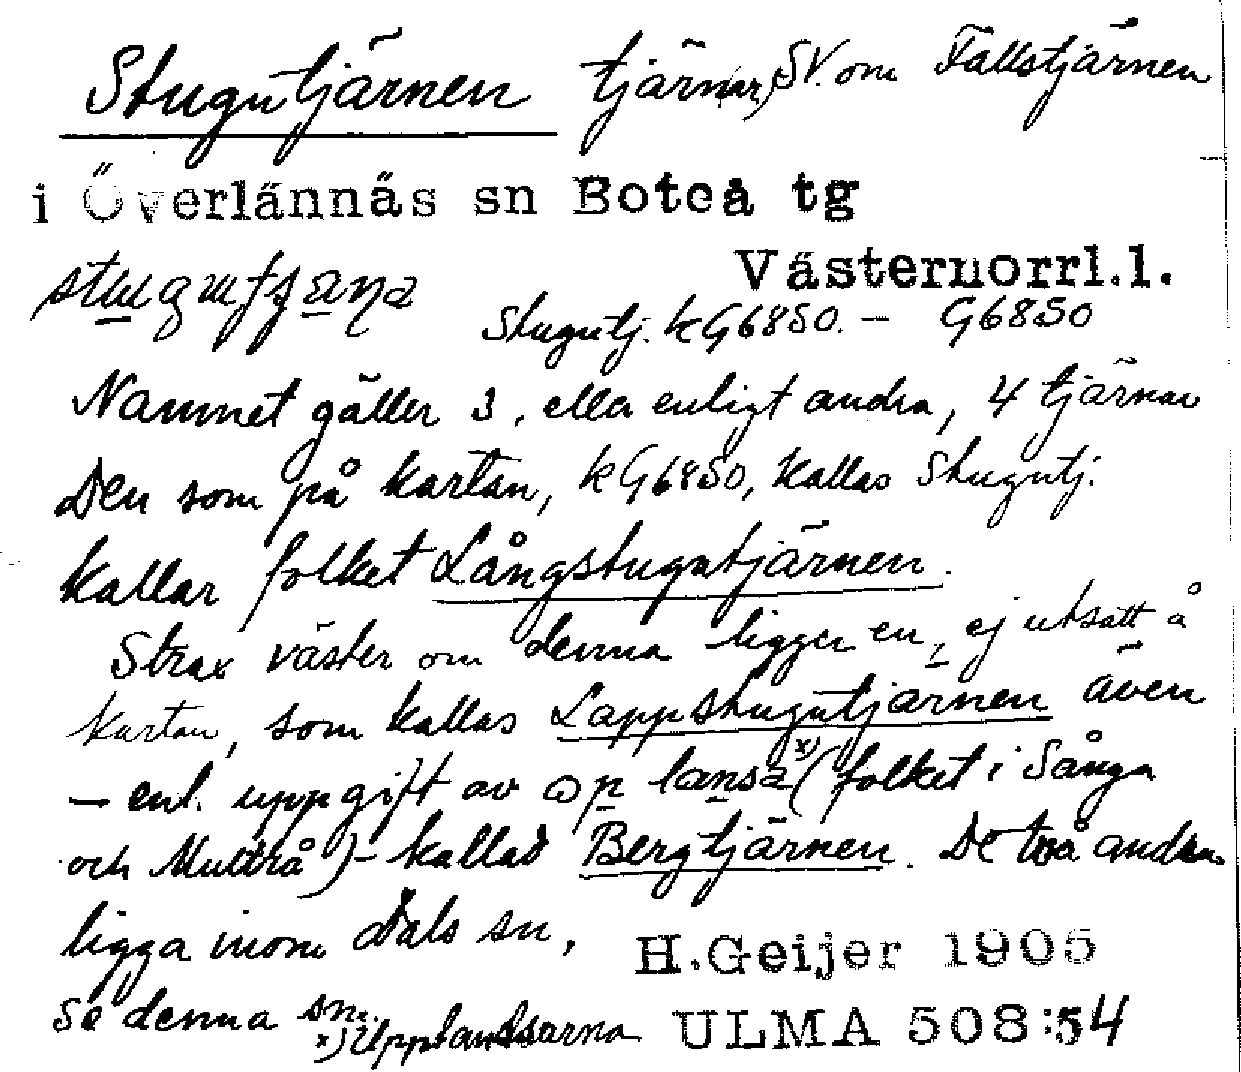 Stugutjärnen tjärnar, SV. om Fällstjärnen
i Överlännäs sn Boteå tg
Västernorrl.l.
Stugutj. kG6850. - G6850
Namnet gäller 3, eller enligt andra, 4 tjärnar
Den som på kartan, kG6850, kallas Stugutj.
kallar folket Långstugutjärnen.
Strax väster om denna ligger en, ej utsatt å
kartan, som kallas Lappstugutjärnen även
– enl. uppgift av x) (folket i Sånga
och Multrå) - kallad Bergtjärnen. De två andra
ligga inom Dals sn,
H.Geijer 1905
se denna sn.
x) Upplandsarna
ULMA 508:54